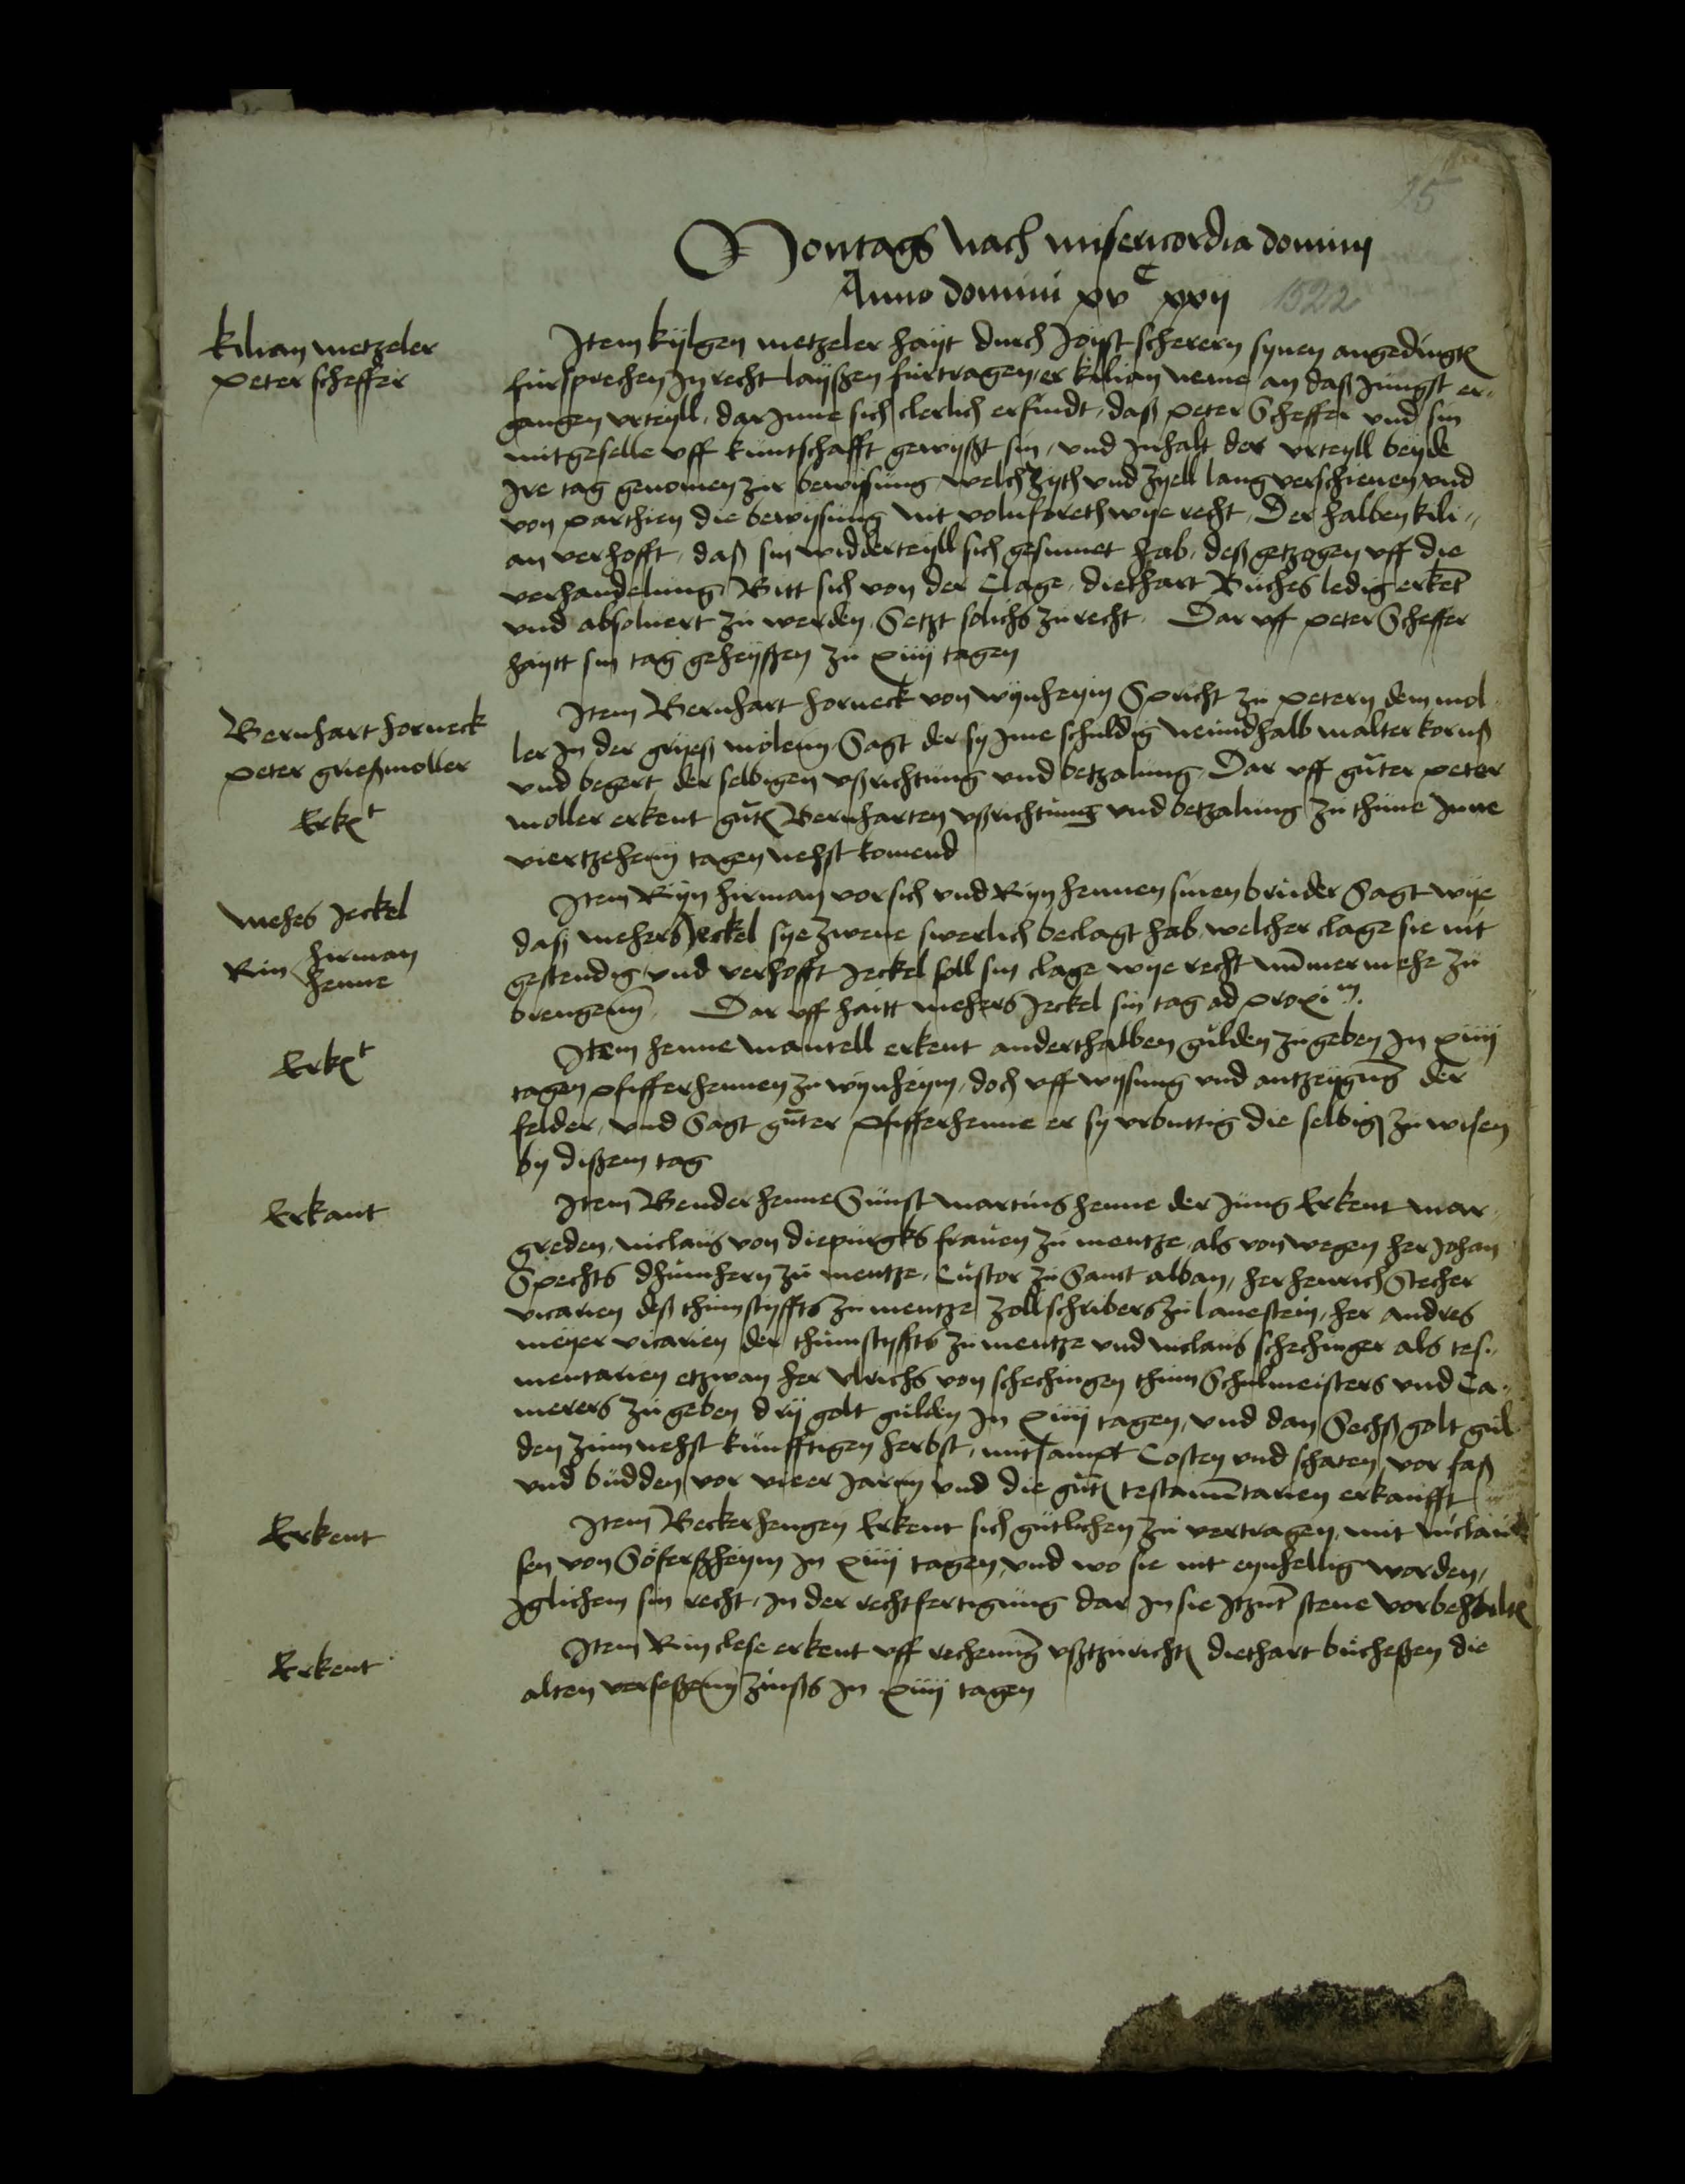 15
Montags nach misericordia dominj
Anno domini xvC xxij 1522
kilian metzeler
peter scheffer
Item kylgen metzeler hayt durch Joyst scherern synen angedingten
fursprechen In recht layßen furtragen, er kilian neme an daß Jungst er-
gangen vrteyll, dar Inne sich clerlich erfindt, daß peter Scheffer vnd sin
mitgeselle vff kuntschafft gewyßt sin, vnd Inhalt der vrteyll beyde
Ire tag genomen zur bewisung welch zyth vnd zyell lang verschienen vnd
von parthien die bewysung nit voluforeth wye recht, Der halben kili-
an verhofft, daß sin widderteyll sich gesumet hab, deß getzogen vff die
verhandelung, Bitt sich von der Clage, diethart Buches ledig erkent
vnd absoluert zu werden, Setzt solichs zu recht. Dar vff peter Scheffer
haytt sin tag geheyßen zu xiiij tagen
Bernhart horneck
peter grießmoller
Erkt
Item Bernhart horneck von wynheym Spricht zu petern dem mol
ler In der gryeß molenn, Sagt der sy Ime schuldig neundhalb malter korns
vnd begert der selbigen vßrichtung vnd betzalung, Dar vff guter peter
moller erkent guten Bernharten vßrichtung vnd betzalung zu thune Inne
viertzehenn tagen nehst komend
mehes Jeckel
Rin hirman
henne
Item Ryn hirman vor sich vnd Ryn hennen sinen bruder Sagt wye
daß mehers Jeckel sye zwene swerlich beclagt hab, welcher clage sie nit
gestendig, vnd verhofft Jeckel soll sin clage wye recht nummer mehe zu
brengenn. Dar vff haitt mehers Jeckel sin tag ad proxim.
Erkt
Item henne mantell erkent anderthalben gulden zu geben In xiiij
tagen pfifferhennen zu wynheym, doch vff wysung vnd antzeygung der
felder, vnd Sagt guter pfifferhenne er sy vrbuttig die selbigen zu wisen
by dißem tag
Erkant
Item Benderhenne Sunst martins henne der Jung Erkent mar-
greden, niclaus von diepurgks frauen zu mentze, als von wegen her Johan
Spechts dhumhern zu mentze, Custor zu Sanct alban, her henrich Stecher
vicarien deß thumstyffts zu mentze zollschribers zu lanestein, her andres
meyer vicarien der thumstyffts zu mentze vnd niclaus schechinger als tes-
mentarien etzwan her vlrichs von schechingen thum Schulmeisters vnd Ca-
merers zu geben dry golt gulden In xiiij tagen, vnd dan Sechß golt gul
den zum nehst kunfftigen herbst, mit sampt Costen vnd schaten vor faß
vnd budden vor vieer Jarnn vnd die guten testamentarien erkaufft
Erkent
Item Beckerhengen Erkent sich gutlichen zu vertragen, mit niclau
sen von Soferßheym In xiiij tagen, vnd wo sie nit eynhellig worden,
Iglichem sin recht, In der rechtfertigung dar In sie Itzunt stene vorbehalten
Erkent
Item Rin clese erkent vff rechenung vßtzurichten diethart bucheßen die
alten verseßenn zinßs In xiiij tagen